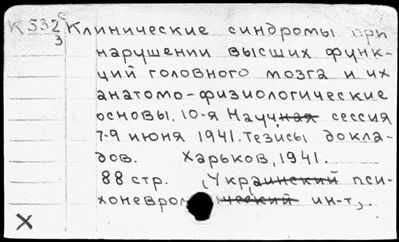 К532с Клинические синдромы при
3 нарушении высших функ-
ций головного мозга и их
анатомо-физиологические
основы. 10-я Научная сессия
7-9 июня 1941. Тезисы докла-
дов. Харьков, 1941.
88 стр. (Украинский пси-
хоневрологический ин-т).
X